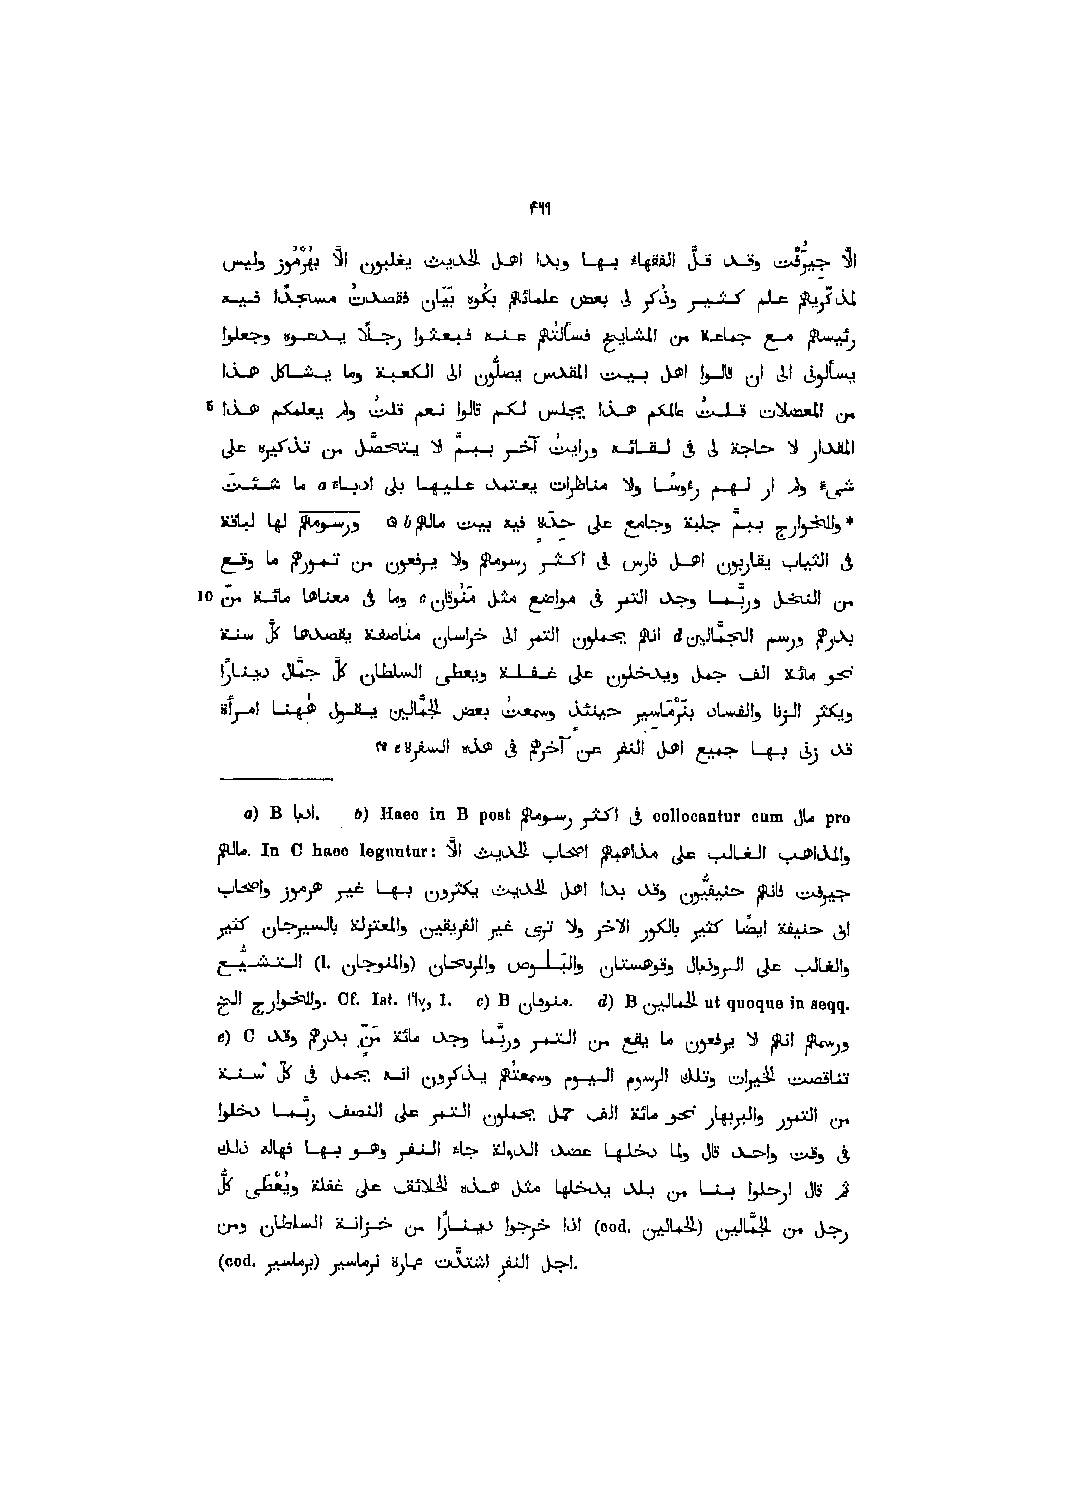 ۴٦٩
الّا جِيرُفْت وقد قلّ الفقهاء بها وبدا اهل الحديث يغلبون الّا بهُرْمُوز وليس
لمذكّريهم علم كثير وذُكر لى بعض علمائهم بكُوه بَيَان فقصدتُ مسجدًا فيه
رئيسهم مع جماعة من المشايخ فسألتهم عنه فبعثوا رجلًا يدعوه وجعلوا
يسألونى الى ان قالوا اهل بيت المقدس يصلُّون الى الكعبة وما يشاكل هذا
5 من المعضلات قلتُ عالمكم هذا يجلس لكم قالوا نعم قلتُ ولم يعلمكم هذا
المقدار لا حاجة لى فى لقائه ورايتُ آخر ببمَّ لا يتحصَّل من تذكيره على
شىء ولم ار لهم رءوسًا ولا مناظرات يعتمد عليها بلى ادباء a ما شئتَ
*وللخوارج ببمَّ جلبة وجامع على حِدَةٍ فيه بيت مالهم b ۞ ورسومهم لها لباقة
فى الثياب يقاربون اهل فارس فى اكثر رسومهم ولا يرفعون من تمورهم ما وقع
10 من النخل وربَّما وجد التمر فى مواضع مثل مَنُوقان c وما فى معناها مائة مَنّ
بدرهم ورسم الجمَّالين d انهم يحملون التمر الى خراسان مناصفة يقصدها كلّ سنة
نحو مائة الف جمل ويدخلون على غفلة ويعطى السلطان كلَّ جمّال دينارًا
ويكثر الزنا والفساد بنَرْمَاسِير حينئذٍ وسمعتُ بعض الجمَّالين يقول هٰهنا امرأة
قد زنى بها جميع اهل النفر عن آخِرهم فى هذه السفرة e ۞
a) B ادبا. b) Haec in B post فى اكثر رسومهم collocantur cum مال pro
مالهم. In C haec leguntur: والمذاهب الغالب على مذاهبهم اصحاب الحديث الّا
جيرفت فانهم حنيفيُّون وقد بدا اهل الحديث يكثرون بها غير هرموز واصحاب
ابى حنيفة ايضًا كثير بالكور الاخر ولا ترى غير الفريقين والمعتزلة بالسيرجان كثير
والغالب على الروذبال وقوهستان والبَلوص والمريحان (l. والمنوجان) التشيُّع
وللخوارج الخ. Cf. Ist. ١٦٧, 1. c) B منوبان. d) B الجمالين ut quoque in seqq.
e) C ورسمهم انهم لا يرفعون ما يقع من التمر وربَّما وجد مائة مَنٍّ بدرهم وقد
تناقصت الخيرات وتلك الرسوم اليوم وسمعتُهم يذكرون انه يحمل فى كلّ سنة
من التمور والبربهار نحو مائة الف حمل يحملون التمر على النصف ربَّما دخلوا
فى وقت واحد قال ولما دخلها عضد الدولة جاء النفر وهو بها فهاله ذلك
ثم قال ارحلوا بنا من بلد يدخلها مثل هذه الخلائق على غفلة ويُعْطَى كلُّ
رجل من الجمَّالين (cod. الجمالين) اذا خرجوا دينارًا من خزانة السلطان ومن
اجل النفر اشتدَّت عمارة نرماسير (cod. برماسير).